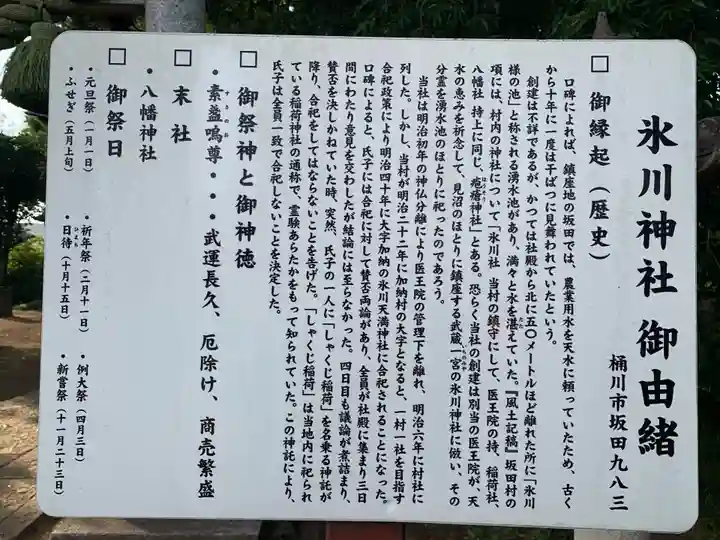 氷川神社 御由緒
桶川市坂田九八三
□ 御縁起(歴史)
口碑によれば、鎮座地の坂田では、農業用水を天水に頼っていたため、古く
から十年に一度は干ばつに見舞われていたという。
創建は不詳であるが、かつては社殿から北に五〇メートルほど離れた所に「氷川
様の池」と称される湧水池があり、満々と水を湛えていた。『風土記稿』坂田村の
項には、村内の神社について「氷川社 当村の鎮守にして、医王院の持、稲荷社、
八幡社 持上に同じ、疱瘡神社」とある。恐らく当社の創建は別当の医王院が、天
水の恵みを祈念して、見沼のほとりに鎮座する武蔵一宮の氷川神社に倣い、その
分霊を湧水池のほとりに祀ったのであろう。
当社は明治初年の神仏分離により医王院の管理下を離れ、明治六年に村社に
列した。しかし、当村が明治二十二年に加納村の大字となると、一村一社を目指す
合祀政策により明治四十年に大字加納の氷川天満神社に合祀されることになった。
口碑によると、氏子には合祀に対して賛否両論があり、全員が社殿に集まり三日
間にわたり意見を交わしたが結論には至らなかった。四日目も議論が煮詰まり、
賛否を決しかねていた時、突然、氏子の一人に「しゃくじ稲荷」を名乗る神託が
降り、合祀をしてはならないことを告げた。「しゃくじ稲荷」は当地内に祀られ
ている稲荷神社の通称で、霊験あらたかをもって知られていた。この神託により、
氏子は全員一致で合祀しないことを決定した。
□ 御祭神と御神徳
・素盞嗚尊・・・武運長久、厄除け、商売繁盛
□ 末社
・八幡神社
□ 御祭日
・元旦祭(一月一日) ・祈年祭(二月十一日) ・例大祭(四月三日)
・ふせぎ(五月上旬) ・日待(十月十五日) ・新嘗祭(十一月二十三日)